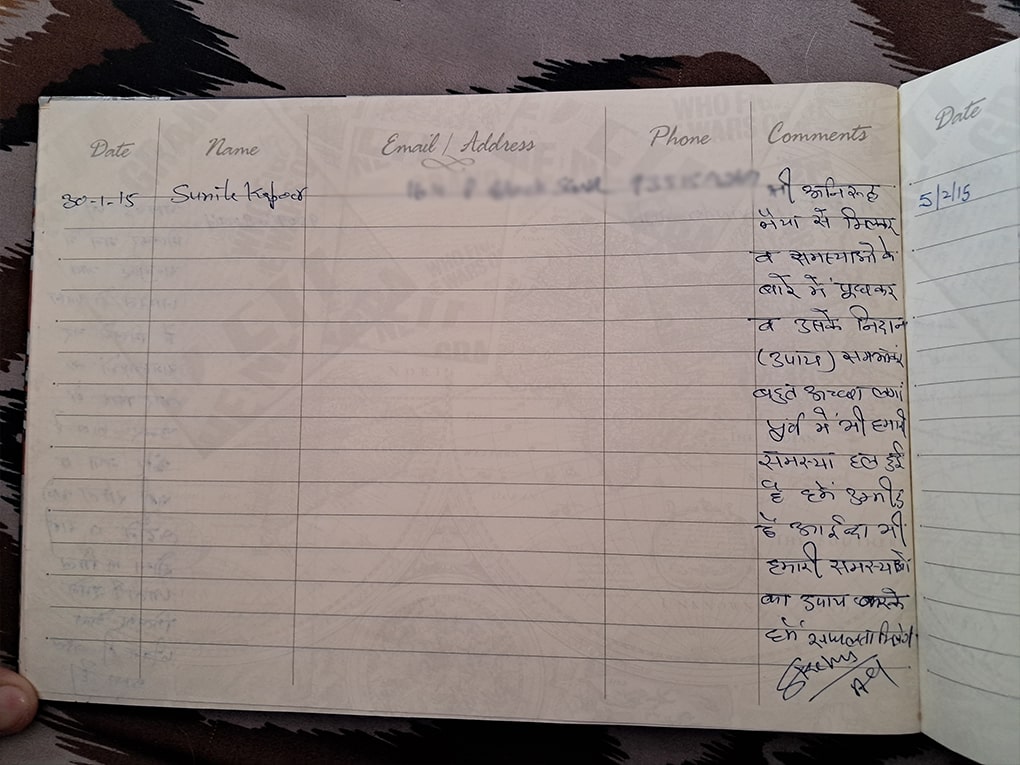 Date Name Email / Address Phone Comments
30-1-15 Sunil Kapoor श्री अनिरूद्ध
भैया से मिलकर
व समस्याओं के
बारे में पूछकर
व उसके निदान
(उपाय) समझकर
बहुत अच्छा लगा
पूर्व में भी हमारी
समस्या हल हुई
है हमें उम्मीद
है आईन्दा भी
हमारी समस्याओं
का उपाय करके
हमें सफलता मिलेगी
Date
5/2/15